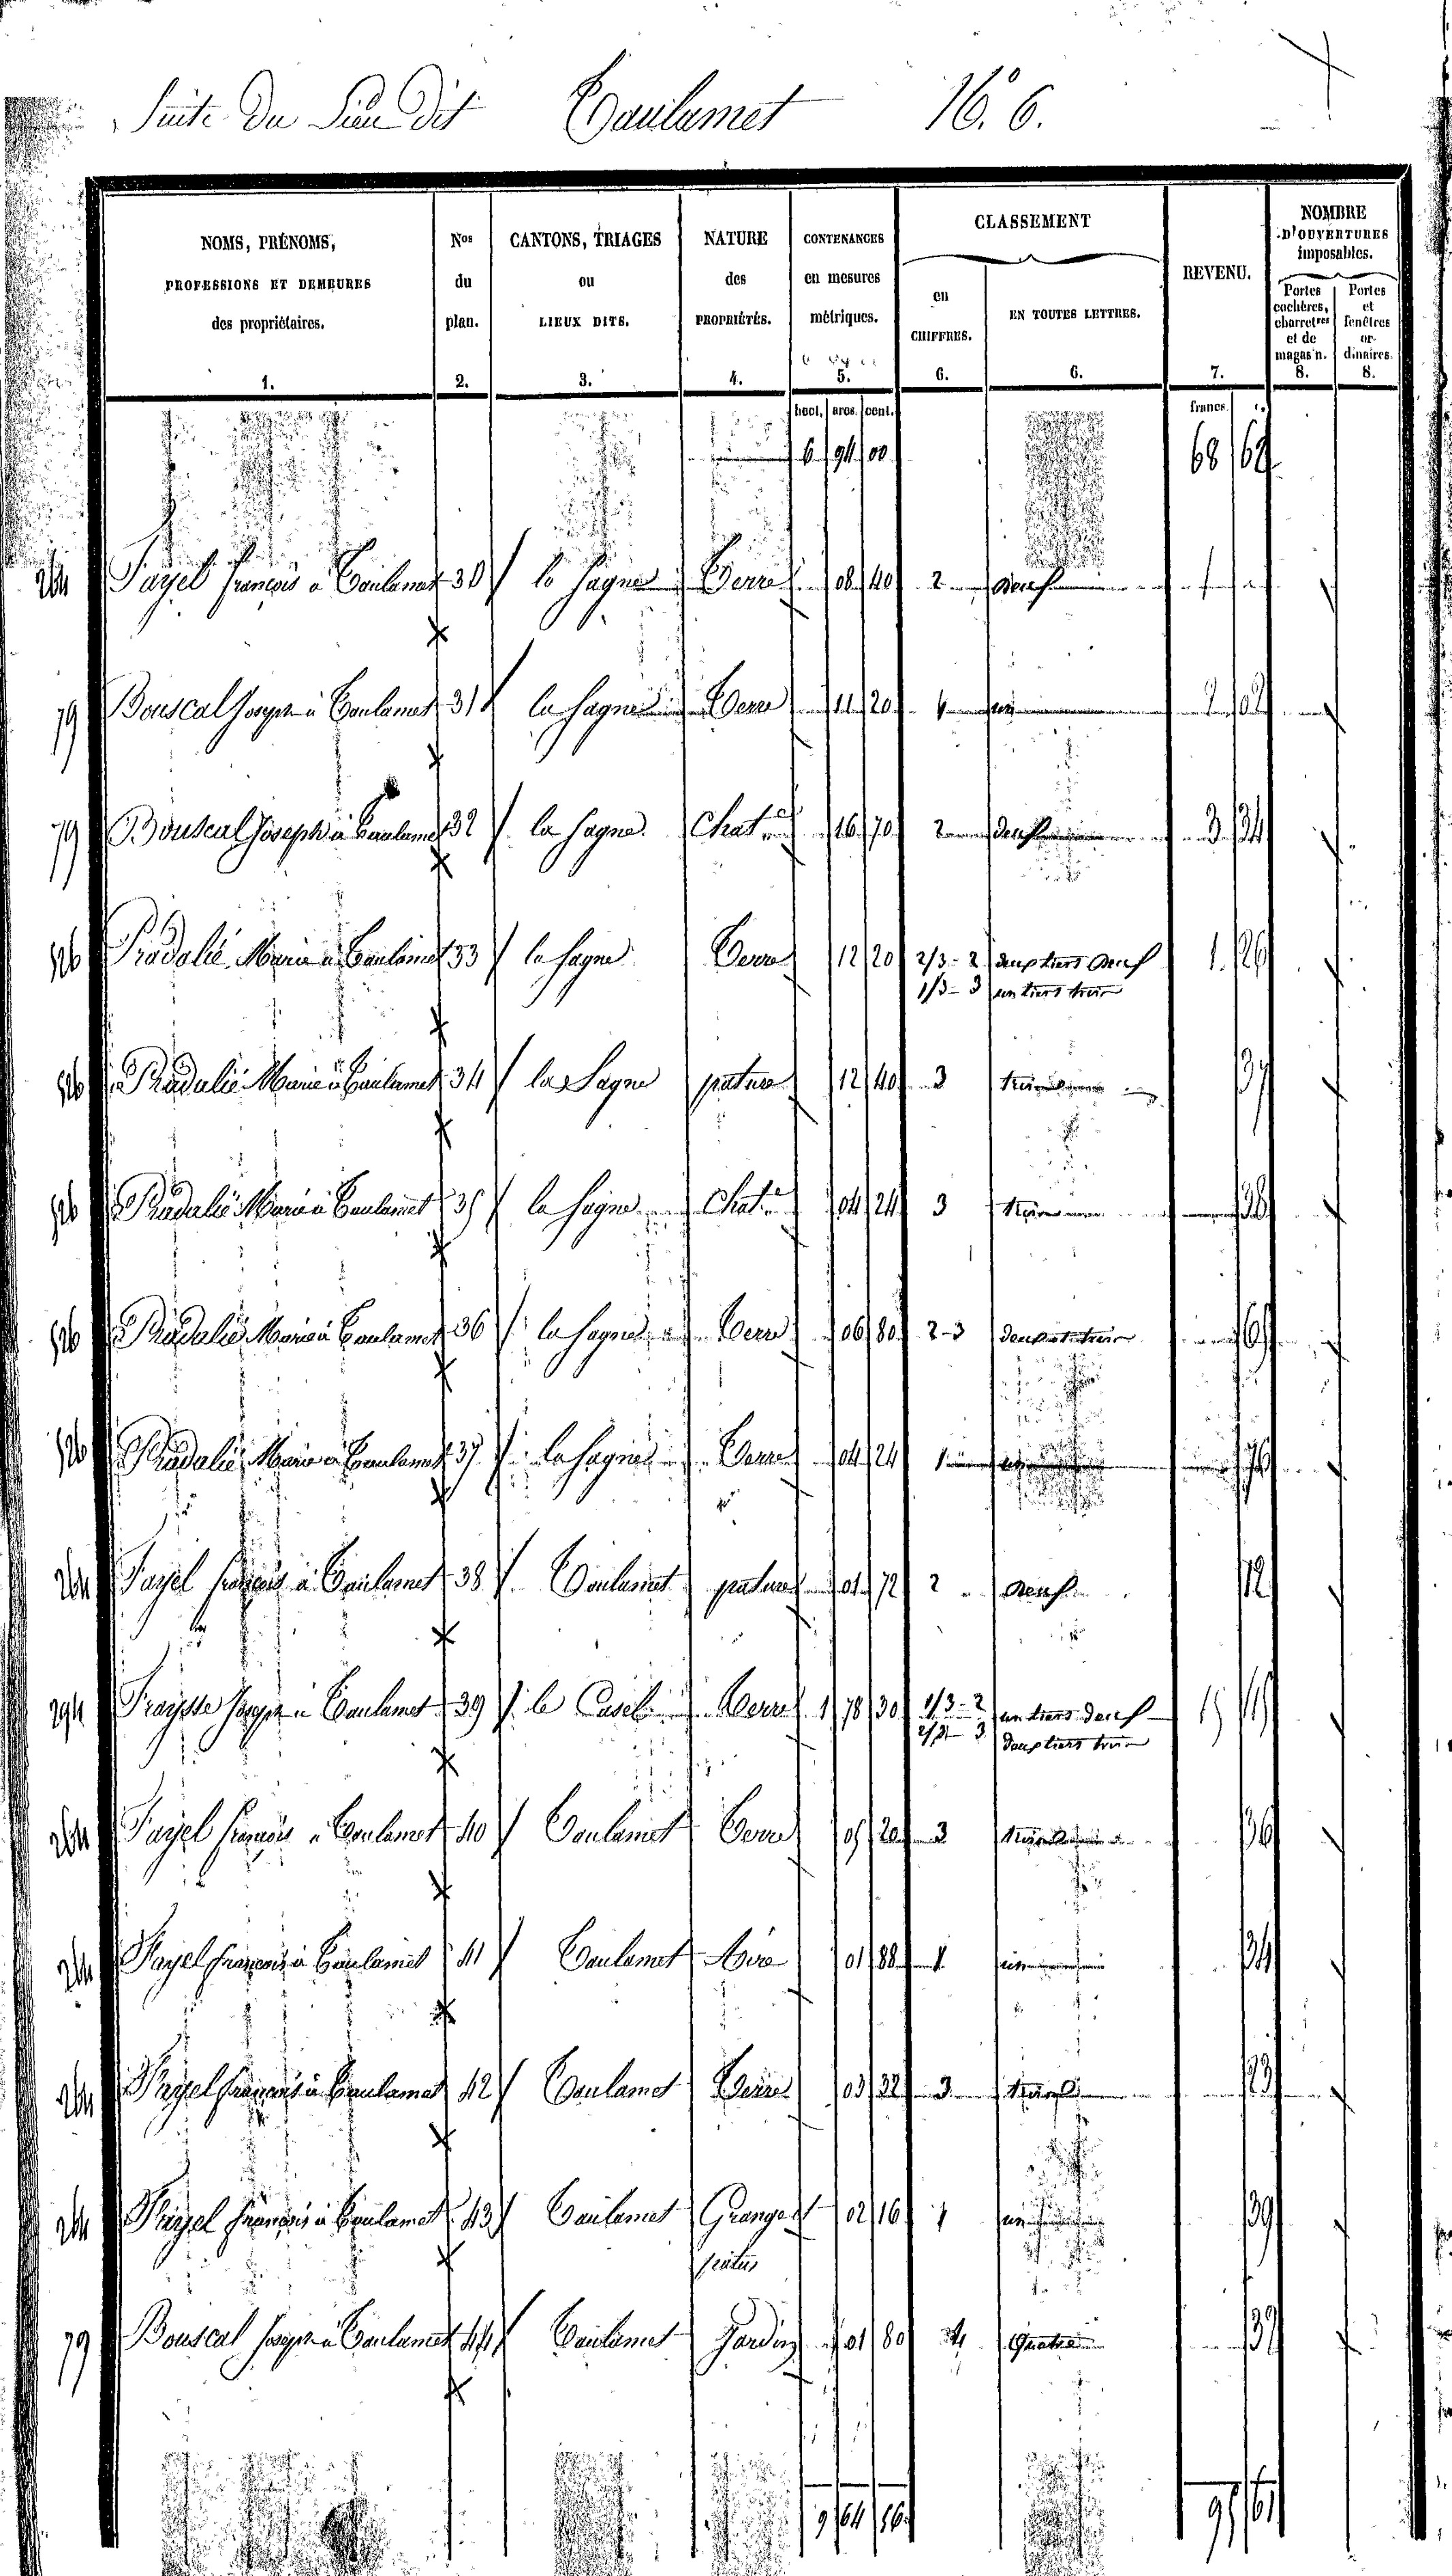 Suite du Lieu dit Caulamet N° 6.
NOMS, PRÉNOMS, PROFESSIONS ET DEMEURES des propriétaires. 1.
Nos du plan. 2.
CANTONS, TRIAGES ou LIEUX DITS. 3.
NATURE des PROPRIÉTÉS. 4.
CONTENANCES en mesures métriques. 5.
CLASSEMENT
en CHIFFRES. 6.
EN TOUTES LETTRES. 6.
REVENU. 7.
NOMBRE D'OUVERTURES imposables.
Portes cochères, charretres et de magas'n. 8.
Portes et fenêtres or- dinaires. 8.
hect. ares cent. francs
6 94 00 68 62
François à Caulamet 30 la Sagne Terre 08 40 2 deux
79 Bouscal Joseph à Caulamet 31 la Sagne Terre 11 20 1 un 2 02
79 Bouscal Joseph à Caulamet 32 la Sagne Chat 16 70 2 deux 3 34
Pradalié Marie à Caulamet 33 la Sagne Terre 12 20 2/3 - 2 deux tiers deux 1 26
1/3 - 3 un tiers trois
Pradalié Marie à Caulamet 34 la Sagne pature 12 40 3 trois 37
Pradalié Marie à Caulamet 35 la Sagne Chat 04 24 3 trois 38
Pradalié Marie à Caulamet 36 la Sagne Terre 06 80 2-3 deux et trois
Pradalié Marie à Caulamet 37 la Sagne Terre 04 24 1 un 76
François à Caulamet 38 Caulamet pature 01 72 2 deux 12
294 Fraysse Joseph à Caulamet 39 le Terre 1 78 30 1/3 - 2 un tiers deux
2/3 - 3 deux tiers trois
François à Caulamet 40 Caulamet Terre 05 20 3 trois 36
François à Caulamet 41 Caulamet 01 88 1 un 34
François à Caulamet 42 Caulamet Terre 03 32 3 trois 23
François à Caulamet 43 Caulamet Grange et 02 16 1 un 39
patus
79 Bouscal Joseph à Caulamet 44 Caulamet Jardin 01 80 4 quatre 32
9 64 56